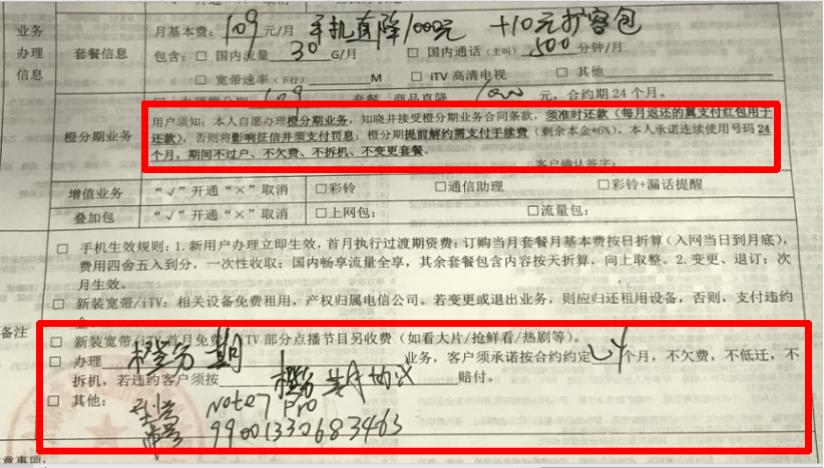 业务办理信息
套餐信息
月基本费：109元/月 手机直降1000元 +10元扩容包
包含：□国内流量30G/月 □国内通话（主叫）500分钟/月
□宽带速率（下行） M □iTV高清电视 □其他
橙分期业务
109 套餐 商品直降1000元，合约期24个月。
用户须知：本人自愿办理橙分期业务，知晓并接受橙分期业务合同条款，须准时还款（每月返还的翼支付红包用于
还款），否则将影响征信并须支付罚息；橙分期提前解约需支付手续费（剩余本金*6%）。本人承诺连续使用号码24
个月，期间不过户、不欠费、不拆机、不变更套餐。
客户确认签字：
增值业务 “√”开通“×”取消 □彩铃 □通信助理 □彩铃+漏话提醒
叠加包 “√”开通“×”取消 □上网包： □流量包：
备注
□手机生效规则：1.新用户办理立即生效，首月执行过渡期资费：订购当月套餐月基本费按日折算（入网当日到月底），
费用四舍五入到分，一次性收取；国内畅享流量全享，其余套餐包含内容按天折算，向上取整。2.变更、退订：次
月生效。
□新装宽带/iTV：相关设备免费租用，产权归属电信公司。若变更或退出业务，则应归还租用设备，否则，支付违约
金
□新装宽带/iTV首月免费，iTV部分点播节目另收费（如看大片/抢鲜看/热剧等）。
□办理 橙分期 业务，客户须承诺按合约约定24个月，不欠费，不低迁，不
拆机，若违约客户须按 橙分期协议 赔付。
□其他：型号 Note7 Pro
串号 99001330683463
注意事项：